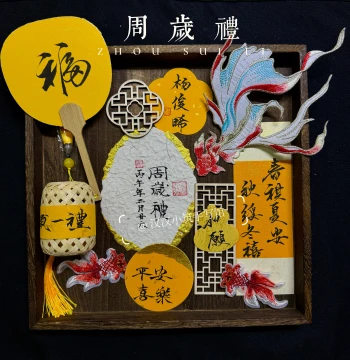 周歲禮
ZHOU SUI LI
福
杨俊晞
周歲禮
丙午年二月廿六
春祺夏安
秋绥冬禧
如願
禮
一
平安
喜樂